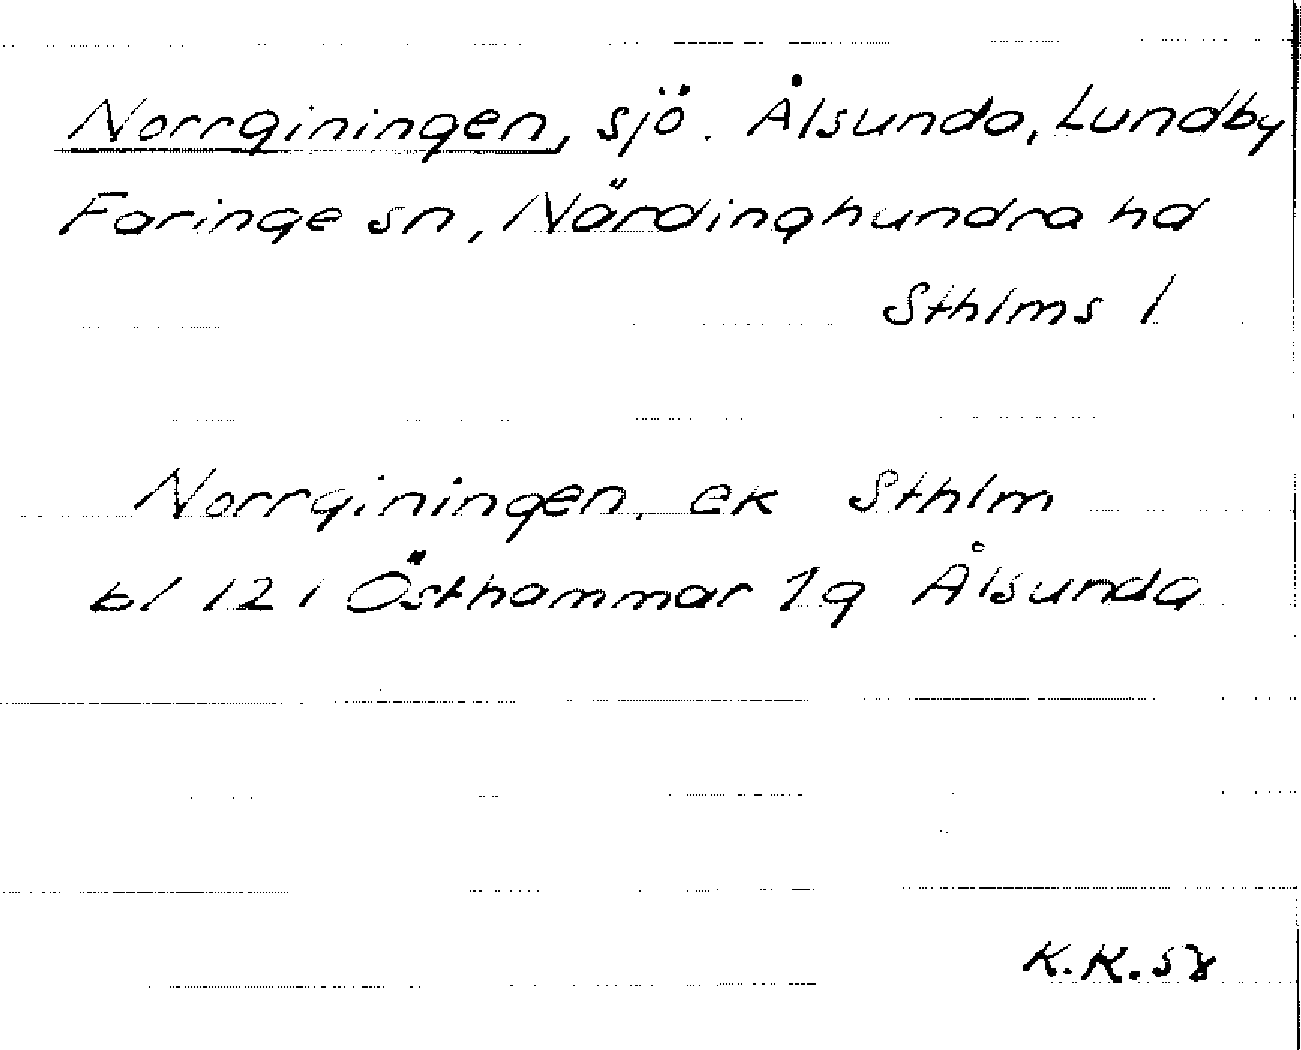 Norrginingen, sjö. Ålsunda, Lundby
Faringe sn, Närdinghundra hd
Sthlms l
Norrginingen, ek Sthlm
bl 12 i Östhammar 1g Ålsunda
K.K. 58